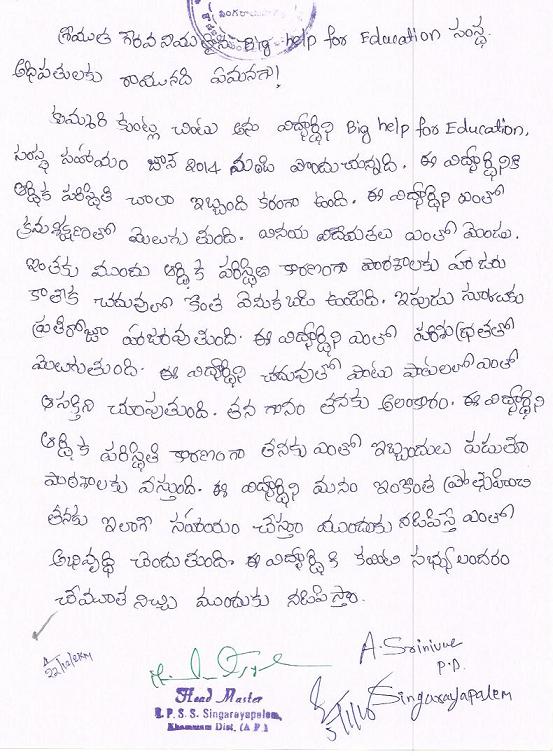 శ్రీయుత గౌరవనియులైన Big help for Education సంస్థ
అధిపతులకు రాయునది ఏమనగా!
కుమ్మరి కుంట్లు చింటు అను విద్యార్థిని Big help for Education,
సంస్థ సహాయం జూన్ 2014 నుండి పొందుచున్నది. ఈ విద్యార్థినికి
ఆర్థిక పరిస్థితి చాలా ఇబ్బంది కరంగా ఉంది. ఈ విద్యార్థిని ఎంతో
క్రమశిక్షణతో మెలుగుతుంది. వినయ విధేయతలు ఎంతో మెండు.
ఇంతకు ముందు ఆర్థిక పరిస్థితి కారణంగా పాఠశాలకు
కాతీక చదువులో కొంత వెనుకబడి ఉండేది. ఇపుడు
ప్రతీరోజూ హాజరవుతుంది. ఈ విద్యార్థిని ఎంతో పరిశుభ్రతతో
మెలుగుతుంది. ఈ విద్యార్థిని చదువుతో పాటు పాటలలో ఎంతో
ఆసక్తిని చూపుతుంది. తన గానం తనకు అలంకారం. ఈ విద్యార్థిని
ఆర్థిక పరిస్థితి కారణంగా తనకు ఎంతో ఇబ్బందులు పడుతూ
పాఠశాలకు వస్తుంది. ఈ విద్యార్థిని మనం ఇంకొంత ప్రోత్సహించి
తనకు ఇలాగే సహాయం చేస్తూ ముందుకు నడిపిస్తే ఎంతో
అభివృద్ధి చెందుతుంది. ఈ విద్యార్థికి కమిటి సభ్యులందరం
చేయూత నిచ్చి ముందుకు నడిపిస్తాం.
A. Srinivas
P.D.
Singarayapalem
Head Master
Z.P.S.S. Singarayapalem,
Khammam Dist. (A.P.)